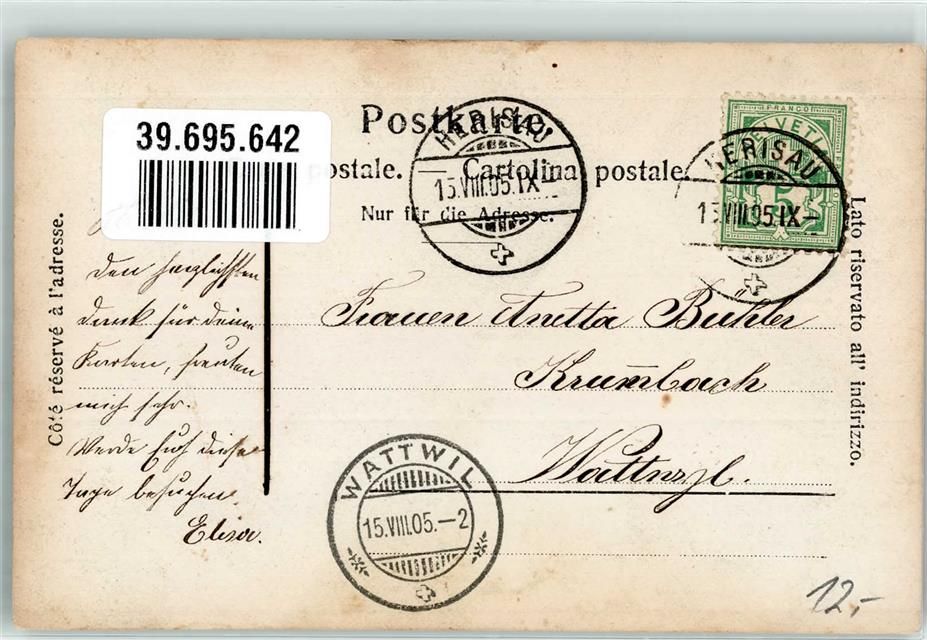 39.695.642
Postkarte
postale. — Cartolina postale.
Nur für die Adresse.
HERISAU
15.VIII.05.IX-
FRANCO
HELVETIA
5
HERISAU
15.VIII.05.IX-
Côté réservé à l'adresse.
Lato riservato all' indirizzo.
den herzlichsten
Dank für deine
Karten, freuten
mich sehr.
Werde Euch diese
Tage besuchen.
Elisa.
Frauen Anetta Buhler
Krum̄bach
WATTWIL
15.VIII.05.—2
12,-